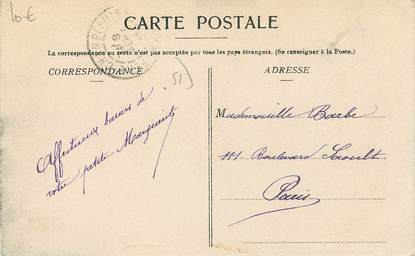 10 €
CARTE POSTALE
La correspondance au recto n'est pas acceptée par tous les pays étrangers. (Se renseigner à la Poste.)
CORRESPONDANCE
ADRESSE
51)
Affectueux baisers de
votre petite Marguerite
Mademoiselle Barbe
111 Boulevard Soult
Paris